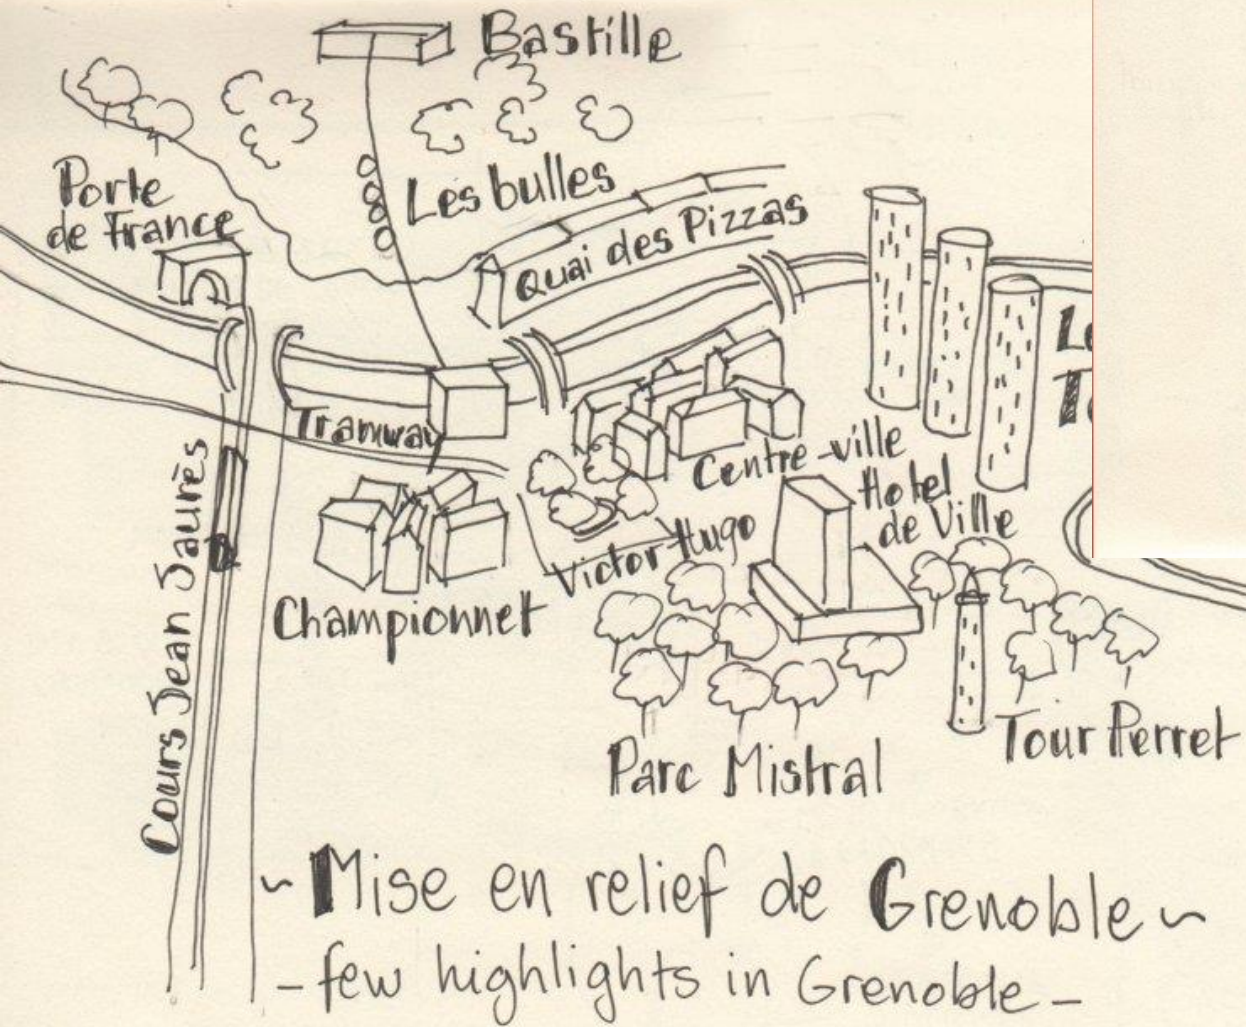 Bastille
Porte
de France
Les bulles
Quai des Pizzas
Tramway
Centre-ville
Hotel
de Ville
Cours Jean Jaurès
Victor Hugo
Championnet
Tour Perret
Parc Mistral
~ Mise en relief de Grenoble ~
- few highlights in Grenoble -